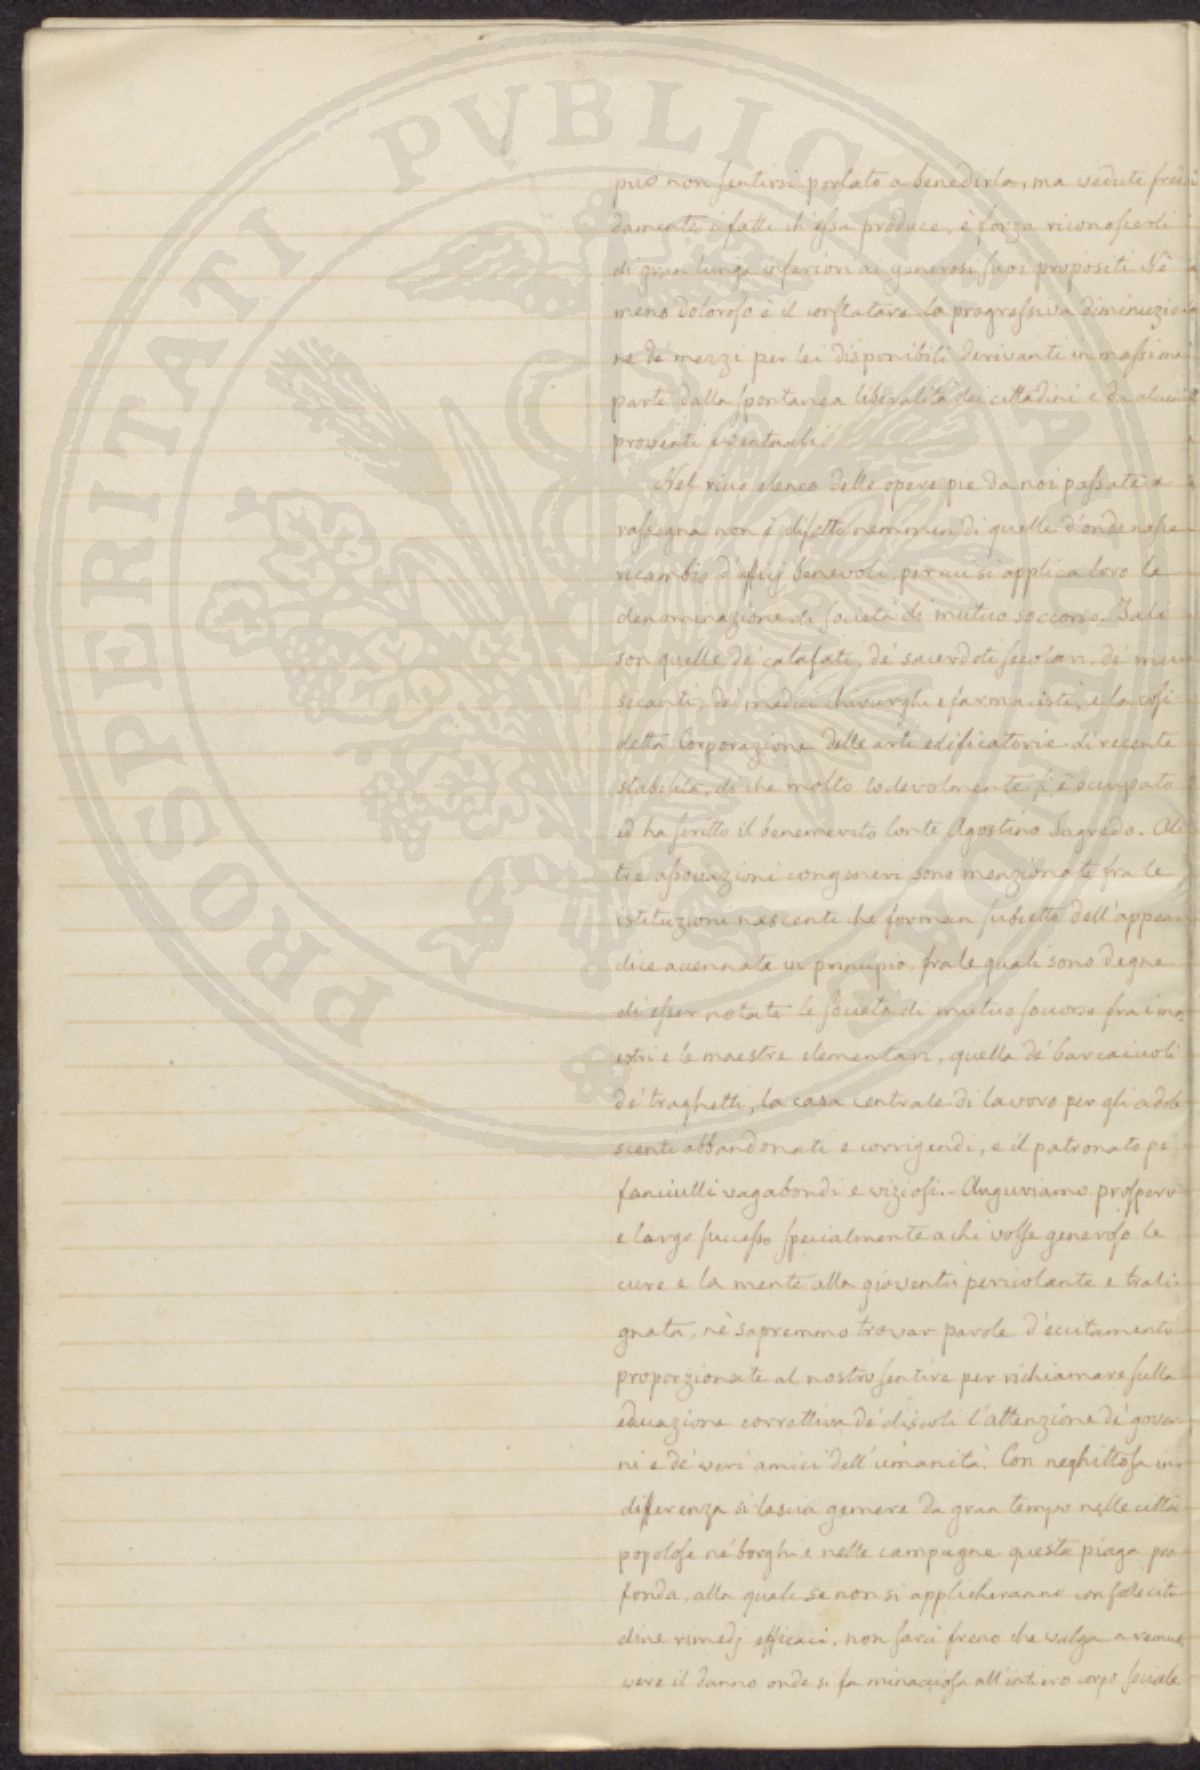 PROSPERITATI PVBLICAE AVGENDAE
può non sentirsi portato a benedirla, ma veduti fred
damente i fatti ch'essa produce, è forza riconoscerli
di gran lunga inferiori ai generosi suoi propositi. Nè
meno doloroso è il constatare la progressiva diminuzio
ne de' mezzi per lei disponibili derivanti in massima
parte dalla spontanea liberalità dei cittadini e da alcuni
proventi eventuali
Nel vivo elenco delle opere pie da noi passate a
rassegna non è difetto nemmen di quelle d'onde nasce
ricambio d'ufficj benevoli, per cui si applica loro la
denominazione di società di mutuo soccorso. Tali
son quelle de' calafati, de' sacerdoti secolari, de' mu
sicanti, de' medici chirurghi e farmacisti, e la così
detta Corporazione delle arti edificatorie di recente
stabilita, di che molto lodevolmente si è occupato
ed ha scritto il benemerito Conte Agostino Sagredo. Al
tre associazioni congeneri sono menzionate fra le
istituzioni nascenti che forman subietto dell'appen
dice accennata in principio, fra le quali sono degne
di esser notate le società di mutuo soccorso fra i ma
estri e le maestre elementari, quella de' barcaiuoli
de' traghetti, la casa centrale di lavoro per gli adole
scenti abbandonati e corrigendi, e il patronato pe'
fanciulli vagabondi e viziosi. - Auguriamo prospero
e largo successo specialmente a chi volse generoso le
cure e la mente alla gioventù pericolante e trali
gnata, nè sapremmo trovar parole d'eccitamento
proporzionate al nostro sentire per richiamare sulla
educazione correttiva de' discoli l'attenzione de' gover
ni e de' veri amici dell'umanità. Con neghittosa in
differenza si lascia gemere da gran tempo nelle città
popolose ne' borghi e nelle campagne questa piaga pro
fonda, alla quale se non si applicheranno con sollecitu
dine rimedj efficaci, non sarà freno che valga a remuo
vere il danno onde si fa minacciosa all'intiero corpo sociale